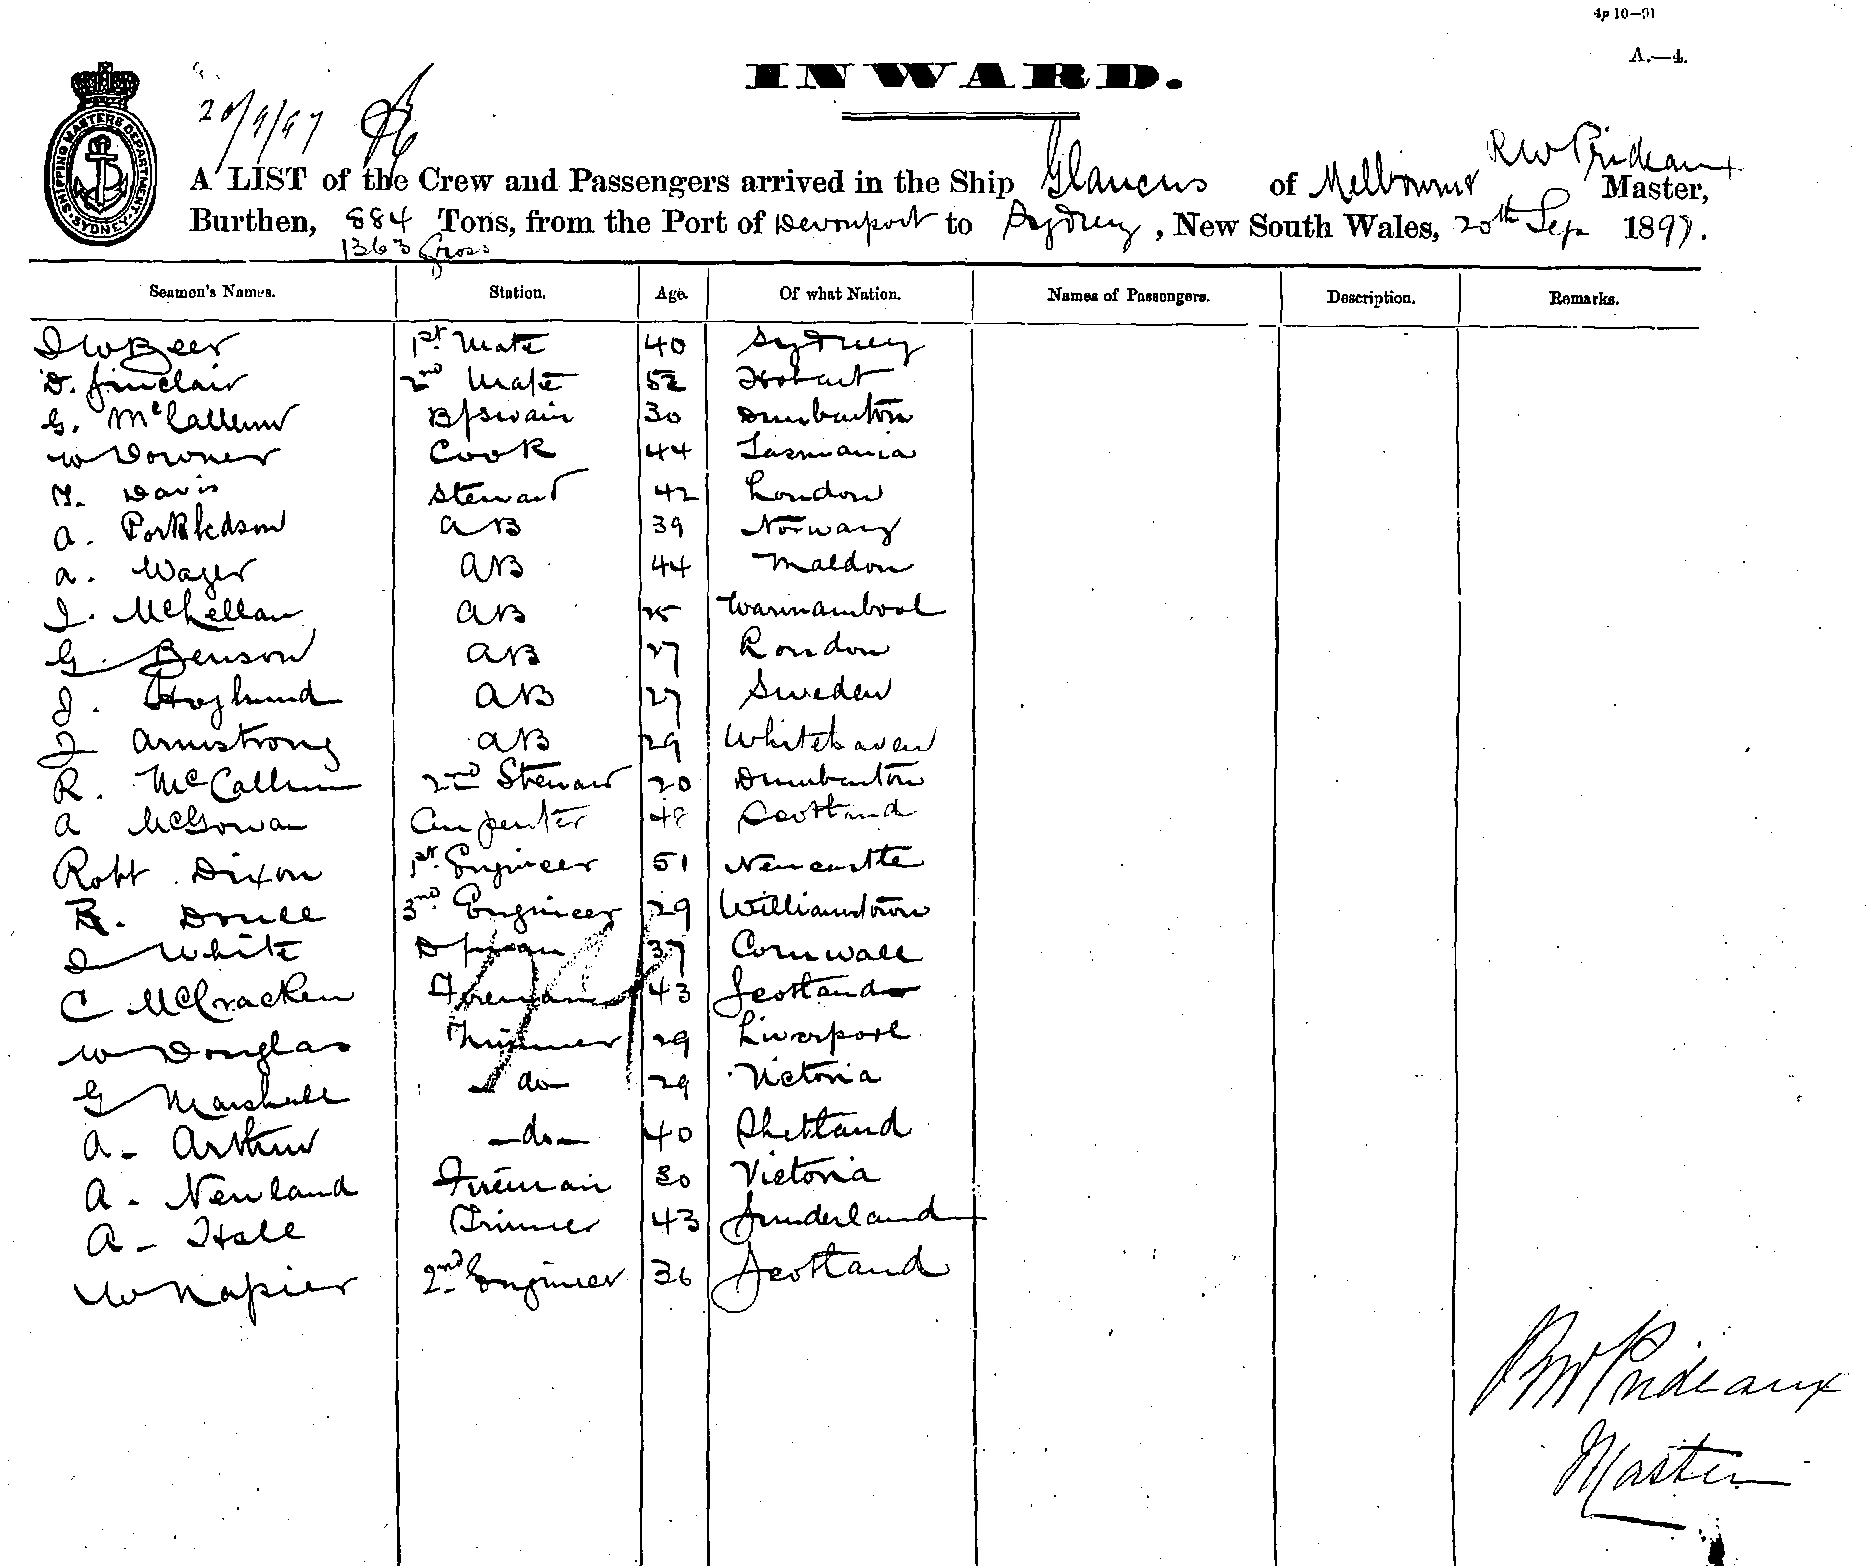 4p 10—91
A.—4.
INWARD.
SHIPPING MASTERS DEPARTMENT
SYDNEY
20/9/97
R W Prideaux
A LIST of the Crew and Passengers arrived in the Ship Glaucus of Melbourne Master,
Burthen, 884 Tons, from the Port of Devonport to Sydney, New South Wales, 20th Sep 1897.
1363 Gross
Seamen's Names. Station. Age. Of what Nation. Names of Passengers. Description. Remarks.
J W Beer 1st Mate 40 Sydney
D. Sinclair 2nd Mate 52 Hobart
G. McCallum B/swain 30 Dumbarton
W Downer Cook 44 Tasmania
Davis Steward 42 London
A. AB 39 Norway
A. Wager AB 44 Maldon
J. McLellan AB 25 Warnambool
G. Benson AB 27 London
J. Hoglund AB 27 Sweden
J Armstrong AB 29 Whitehaven
R. McCallum 2nd Steward 20 Dumbarton
A McGowan Carpenter 48 Scotland
Robt Dixon 1st Engineer 51 Newcastle
R. Druce 3rd Engineer 29 Williamstown
J White D/man 37 Cornwall
C McCracken Fireman 43 Scotland
W Douglas Trimmer 29 Liverpool
G Marshall do 29 Victoria
A. Arthur do 40 Shetland
A. Newland Fireman 30 Victoria
A. Hall Trimmer 43 Sunderland
W Napier 2nd Engineer 36 Scotland
RW Prideaux
Master